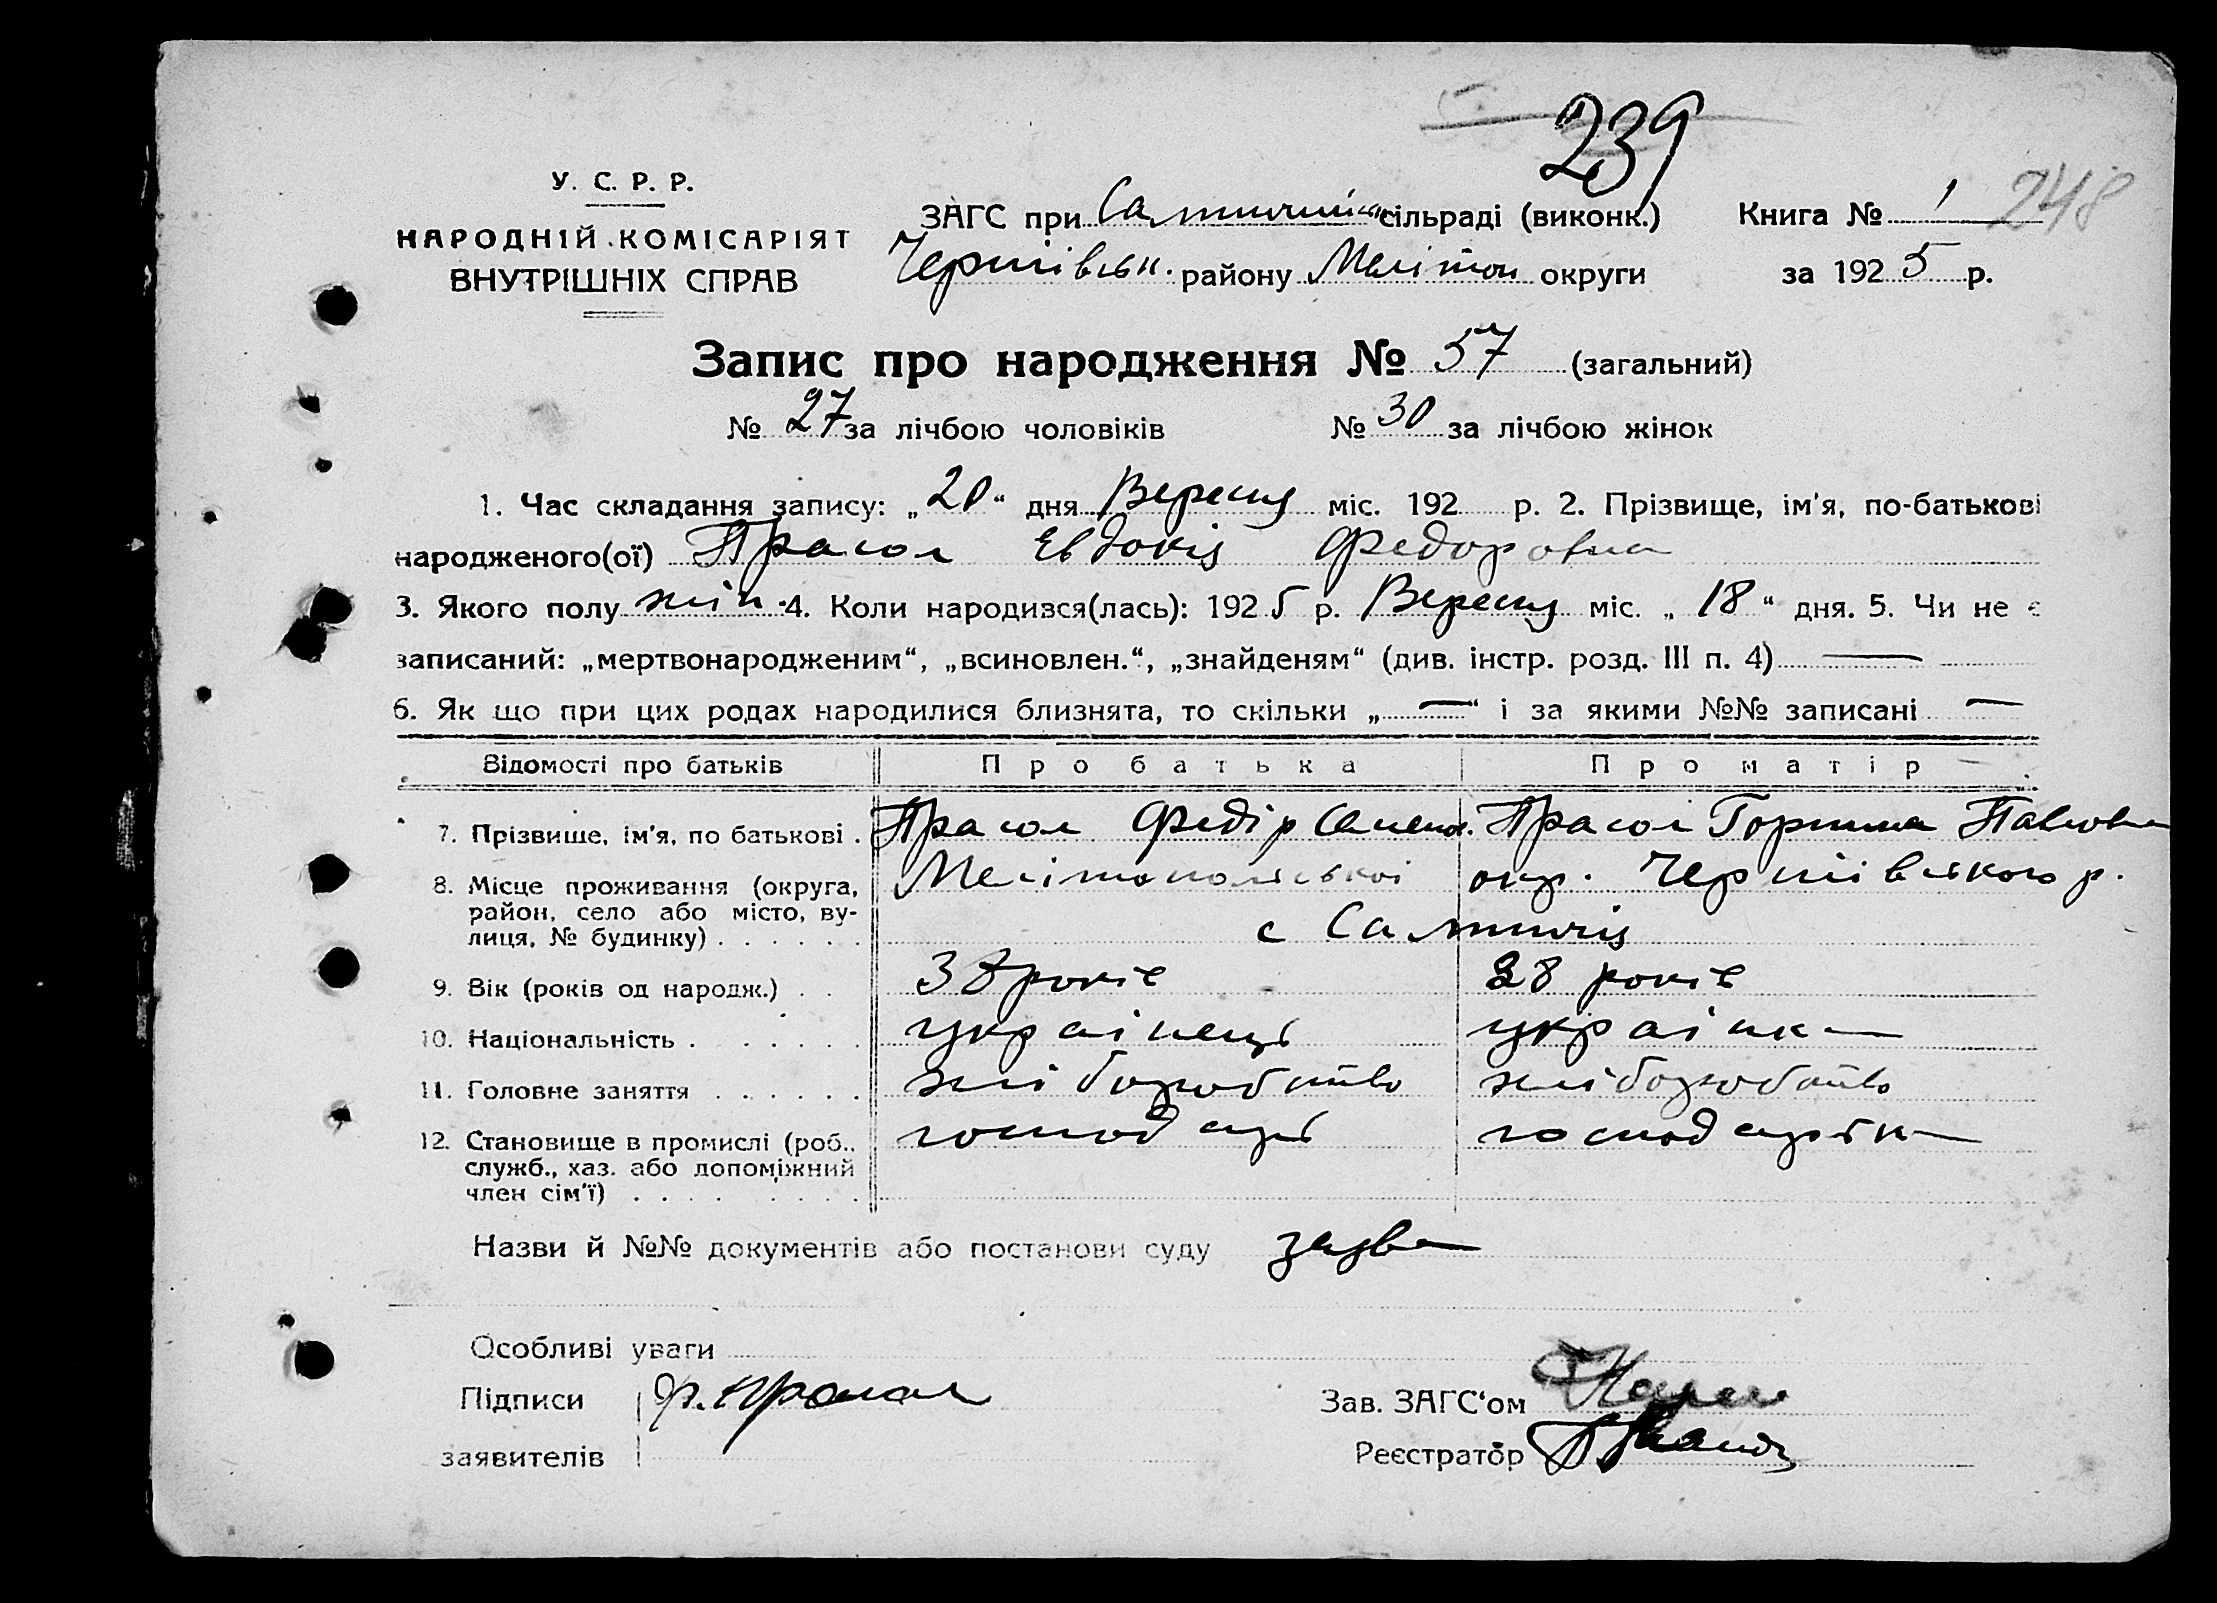 239
У. С. Р. Р.
НАРОДНІЙ КОМІСАРІЯТ
ВНУТРІШНІХ СПРАВ
ЗАГС при Салтичий сільраді (виконк.) Книга № 1 248
Чернівськ. району Мелітоп округи за 1925 р.
Запис про народження № 57 (загальний)
№ 27 за лічбою чоловіків № 30 за лічбою жінок
1. Час складання запису: „20“ дня Вересня міс. 192 р. 2. Прізвище, ім'я, по-батькові
народженого(ої) Прасол Евдокія Федоровна
3. Якого полу жін. 4. Коли народився(лась): 1925 р. Вересня міс. „18“ дня. 5. Чи не є
записаний: „мертвонародженим“, „всиновлен.“, „знайденям“ (див. інстр. розд. III п. 4) —
6. Як що при цих родах народилися близнята, то скільки „—“ і за якими №№ записані —
Відомості про батьків Про батька Про матір
7. Прізвище, ім'я, по батькові . Прасол Федір Семенов. Прасол Горпина Павловна
8. Місце проживання (округа, район, село або місто, вулиця, № будинку) . . . . . . Мелітопольської окр. Чернівського р.
с Салтичія
9. Вік (років од народж.) . . 38 років 38 років
10. Національність . . . . . . українець українка
11. Головне заняття . . . . . . хліборобство хліборобство
12. Становище в промислі (роб., служб., хаз. або допоміжний член сім'ї) . . . . . . . . господарь господарька
Назви й №№ документів або постанови суду заява
Особливі уваги
Підписи Ф. Прасол Зав. ЗАГС'ом
заявителів Реєстратор